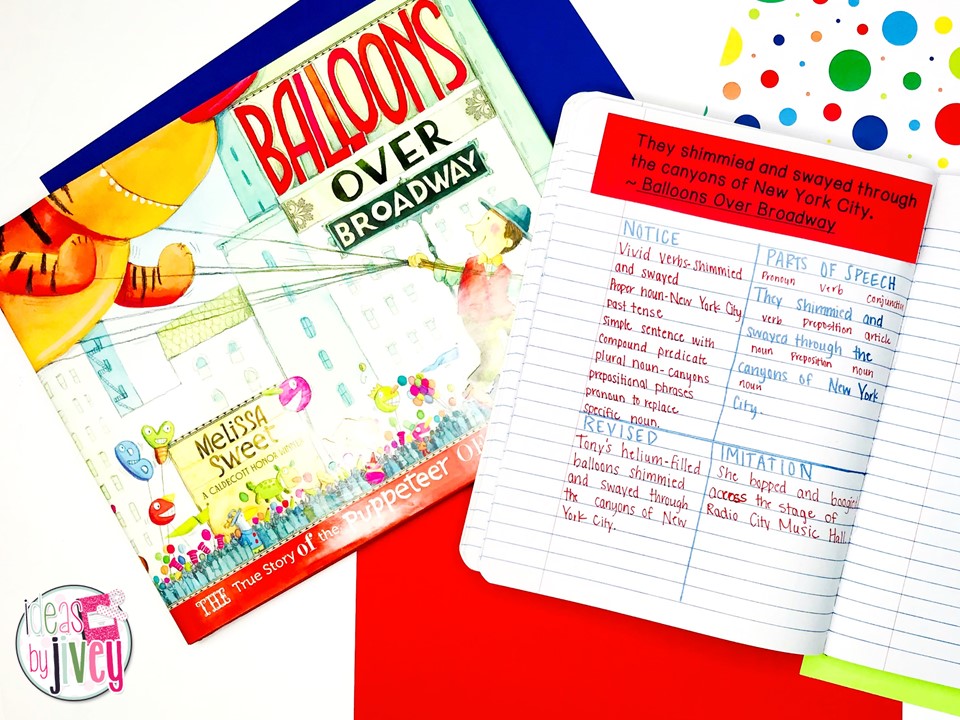 BALLOONS
OVER
BROADWAY
MELISSA
SWEET
A CALDECOTT HONOR
THE True Story of the Puppeteer
They shimmied and swayed through
the canyons of New York City.
~ Balloons Over Broadway
NOTICE
Vivid verbs-shimmied
and swayed
Proper noun-New York City
past tense
simple sentence with
compound predicate
plural noun-canyons
prepositional phrases
pronoun to replace
specific noun.
PARTS OF SPEECH
Pronoun verb conjunction
They shimmied and
verb preposition article
swayed through the
noun preposition noun
canyons of New York
noun
City.
REVISED
Tony's helium-filled
balloons shimmied
and swayed through
the canyons of New
York City.
IMITATION
She bopped and boogied
across the stage of
Radio City Music Hall.
ideas
by jivey